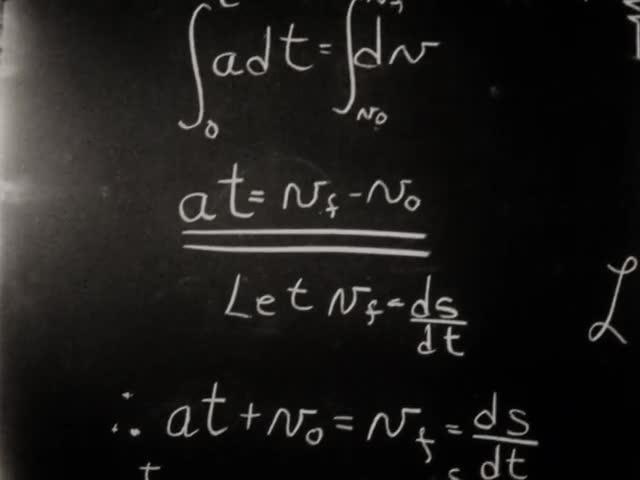 ∫₀ᵗ adt = ∫ᵥ₀ dv
at = v_f - v₀
Let v_f = ds/dt
∴ at + v₀ = v_f = ds/dt
t s
L